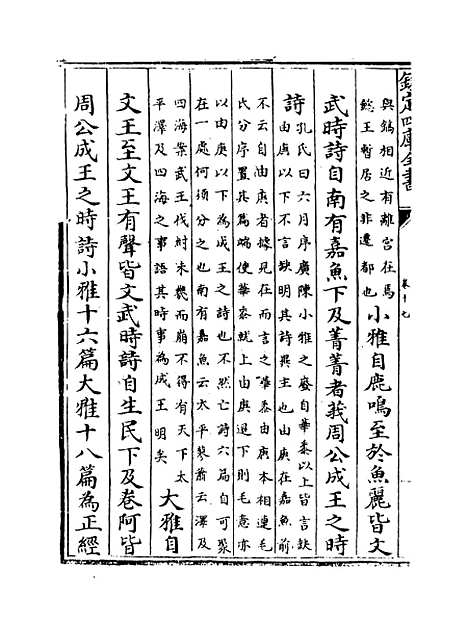 欽定四庫全書
卷十七
與鎬相近有離宮在焉
懿王暫居之非遷都也
小雅自鹿鳴至於魚麗皆文
武時詩自南有嘉魚下及菁菁者莪周公成王之時
詩
孔氏曰六月序廣陳小雅之廢自華黍以上皆言缺
由庚以下不言缺明其詩異主也由庚在嘉魚前
不云自由庚者據見在而言之華黍由庚本相連毛
氏分序置其篇端使華黍就上由庚退下則毛意亦
以由庚以下為成王之詩也不然亡詩六篇自可聚
在一處何須分之也南有嘉魚云太平蓼蕭云澤及
四海案武王伐紂未幾而崩不得有天下太
平澤及四海之事語其時事為成王明矣
大雅自
文王至文王有聲皆文武時詩自生民下及卷阿皆
周公成王之時詩小雅十六篇大雅十八篇為正經